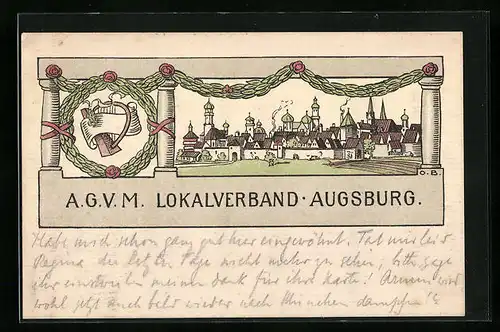 O.B.
A.G.V.M. LOKALVERBAND · AUGSBURG.
Habe mich schon ganz gut hier eingewöhnt. Tat mir leid
Regina die letzten Tage nicht mehr zu sehen; bitte sage
ihr einstweilen meinen Dank für ihre Karte! Armin wird
wohl jetzt auch bald wieder nach München dampfen!